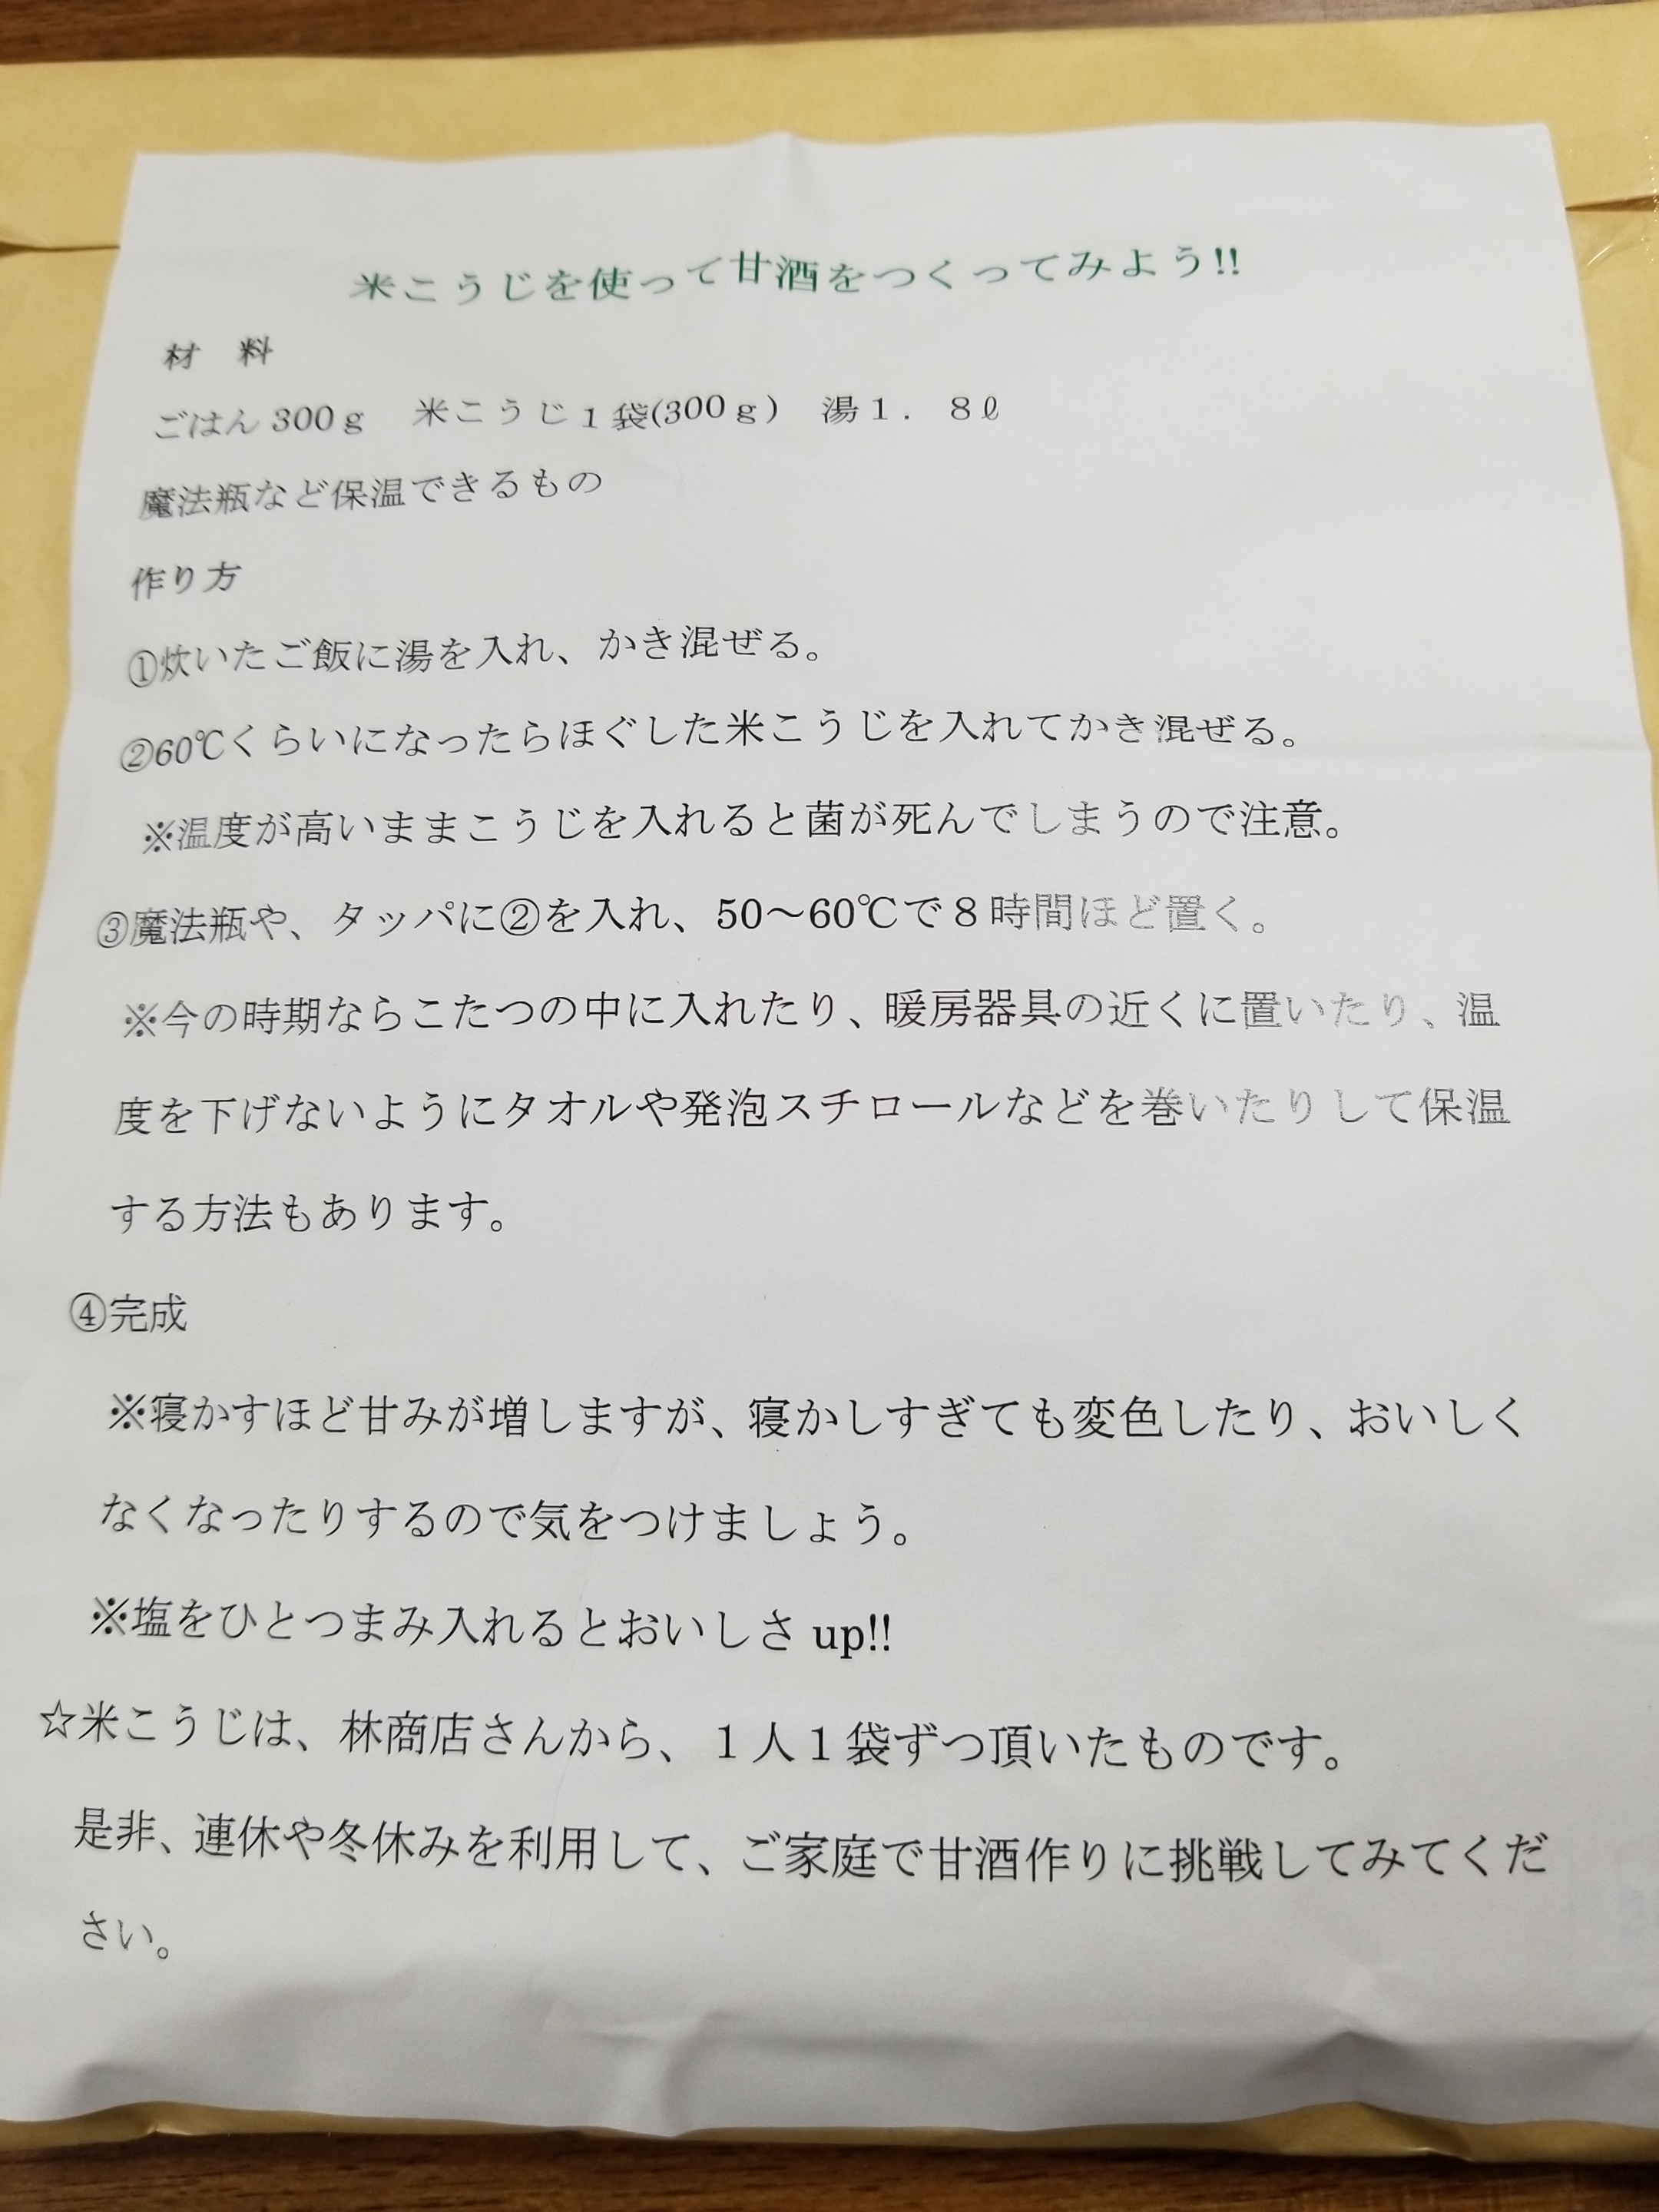 米こうじを使って甘酒をつくってみよう!!
材　料
ごはん 300ｇ　米こうじ１袋(300ｇ)　湯１．８ℓ
魔法瓶など保温できるもの
作り方
①炊いたご飯に湯を入れ、かき混ぜる。
②60℃くらいになったらほぐした米こうじを入れてかき混ぜる。
※温度が高いままこうじを入れると菌が死んでしまうので注意。
③魔法瓶や、タッパに②を入れ、50～60℃で８時間ほど置く。
※今の時期ならこたつの中に入れたり、暖房器具の近くに置いたり、温
度を下げないようにタオルや発泡スチロールなどを巻いたりして保温
する方法もあります。
④完成
※寝かすほど甘みが増しますが、寝かしすぎても変色したり、おいしく
なくなったりするので気をつけましょう。
※塩をひとつまみ入れるとおいしさ up!!
☆米こうじは、林商店さんから、１人１袋ずつ頂いたものです。
是非、連休や冬休みを利用して、ご家庭で甘酒作りに挑戦してみてくだ
さい。